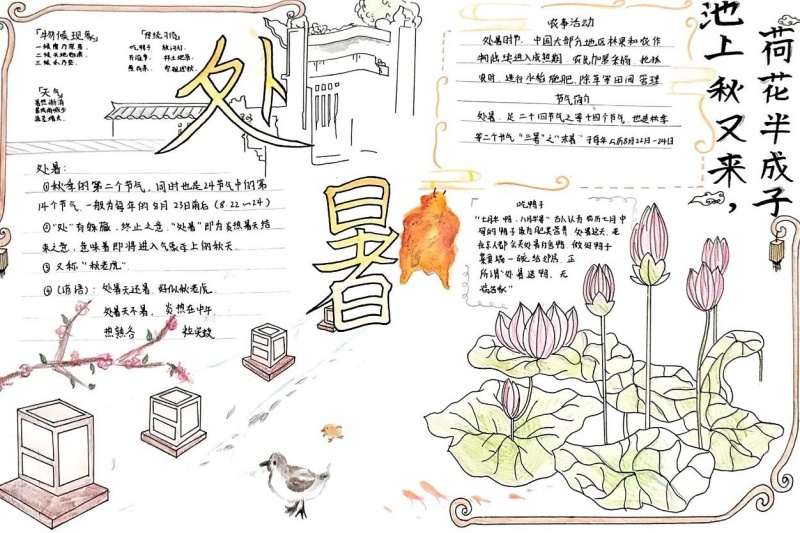 「物候现象」
一候鹰乃祭鸟
二候天地始肃
三候禾乃登
「传统习俗」
吃鸭子 放河灯
开渔节 拜土地爷
煎药茶 祭祖迎秋
「天气」
暑热渐消
处暑
处暑:
①秋季的第二个节气,同时也是24节气中的第
14个节气.一般为每年的8月23日前后(8.22～24)
②"处"有躲藏、终止之意."处暑"即为炎热暑天结
束之意,意味着即将进入气象学上的秋天.
③又称"秋老虎".
④(谚语): 处暑天还暑,好似秋老虎.
处暑天不暑,炎热在中午.
农事活动
处暑时节,中国大部分地区林果和农作
物此时进入成熟期.农民加紧采摘、抢抓
农时,进行水稻施肥,除草等田间管理.
节气简介
处暑,是二十四节气之第十四个节气,也是秋季
第二个节气"三暑"之"末暑"于每年公历8月22日-24日
吃鸭子
"七月半鸭,八月半芋"古人认为农历七月中
旬的鸭子最为肥美营养.处暑这天,老
北京人都会去处暑百合鸭,做好鸭子
要盛一碗送给邻居,正
所谓"处暑送鸭,无
病各家"
荷花半成子
池上秋又来,